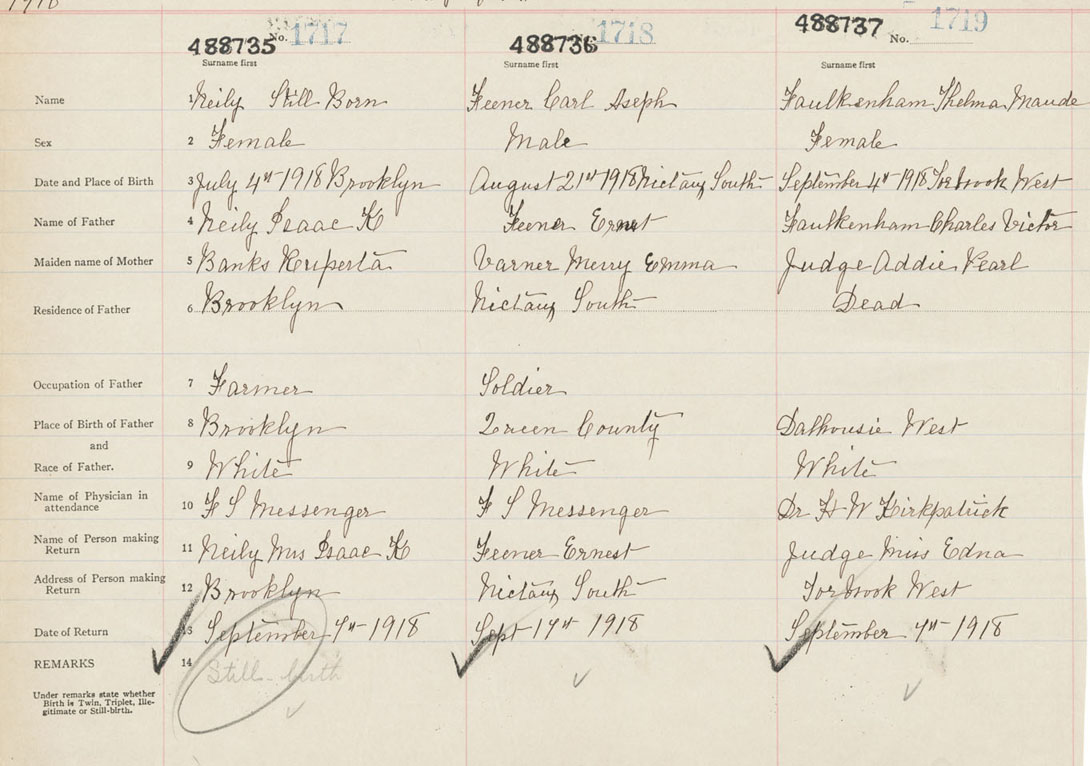 1918
488735 No. 1717 488736 No. 1718 488737 No. 1719
Surname first Surname first Surname first
Name 1 Neily Still Born Feener Carl Aseph Faulkenham Thelma Maude
Sex 2 Female Male Female
Date and Place of Birth 3 July 4th 1918 Brooklyn August 21st 1918 Nictaux South September 4th 1918 Torbrook West
Name of Father 4 Neily Isaac K Feener Ernest Faulkenham Charles Victor
Maiden name of Mother 5 Banks Ruperta Varner Merry Emma Judge Addie Pearl
Residence of Father 6 Brooklyn Nictaux South Dead
Occupation of Father 7 Farmer Soldier
Place of Birth of Father 8 Brooklyn Queen County Dalhousie West
and
Race of Father. 9 White White White
Name of Physician in
attendance 10 F S Messenger F S Messenger Dr H W Kirkpatrick
Name of Person making
Return 11 Neily Mrs Isaac K Feener Ernest Judge Miss Edna
Address of Person making
Return 12 Brooklyn Nictaux South Torbrook West
Date of Return 13 September 7th 1918 Sept 17th 1918 September 7th 1918
REMARKS 14 Still-birth
Under remarks state whether
Birth is Twin, Triplet, Ille-
gitimate or Still-birth.